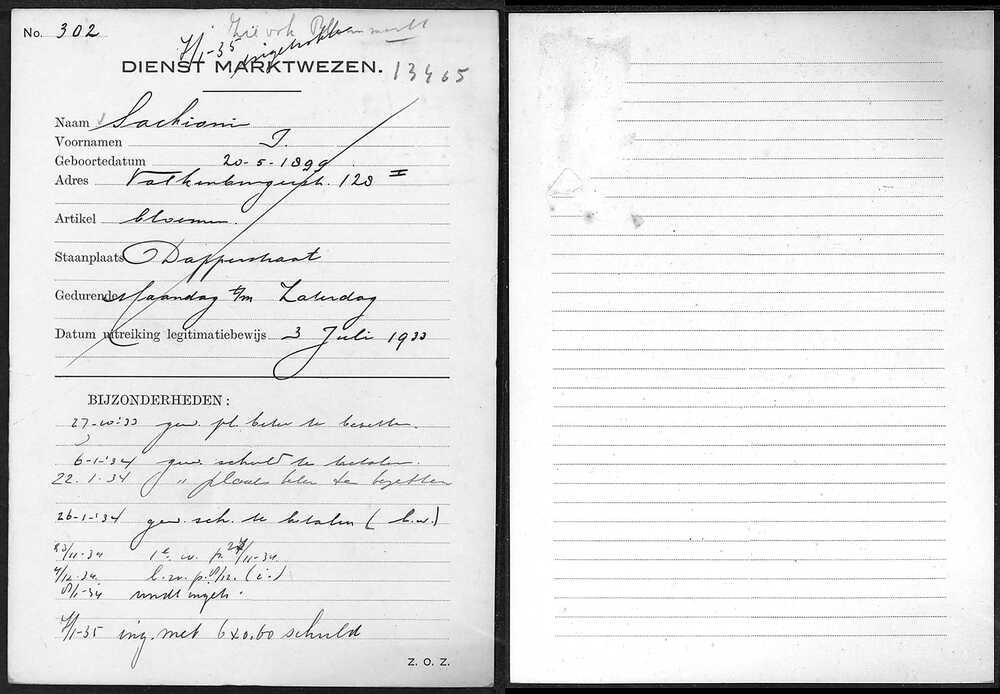 No. 302
Zie ook
7/1-35 ingetrokken
DIENST MARKTWEZEN. 13465
Naam Sackioni
Voornamen J.
Geboortedatum 20-5-1899
Adres Valkenburgerstr. 128 I
Artikel bloemen.
Staanplaats Dapperstraat
Gedurende Maandag t/m Zaterdag
Datum uitreiking legitimatiebewijs 3 Juli 1933
BIJZONDERHEDEN:
27-10-'33 gew. pl. beter te bezetten.
6-1-'34 gew. schuld te betalen.
22.1.34 " plaats beter te bezetten
26-1-'34 gew. sch. te betalen (l.w.)
/11-34 1e. w. p. /11-34
4/12-34 l.w. p. 8/12. (i.)
/1-35 wordt ingetr.
7/1-35 ing. met 6x0,60 schuld
Z. O. Z.